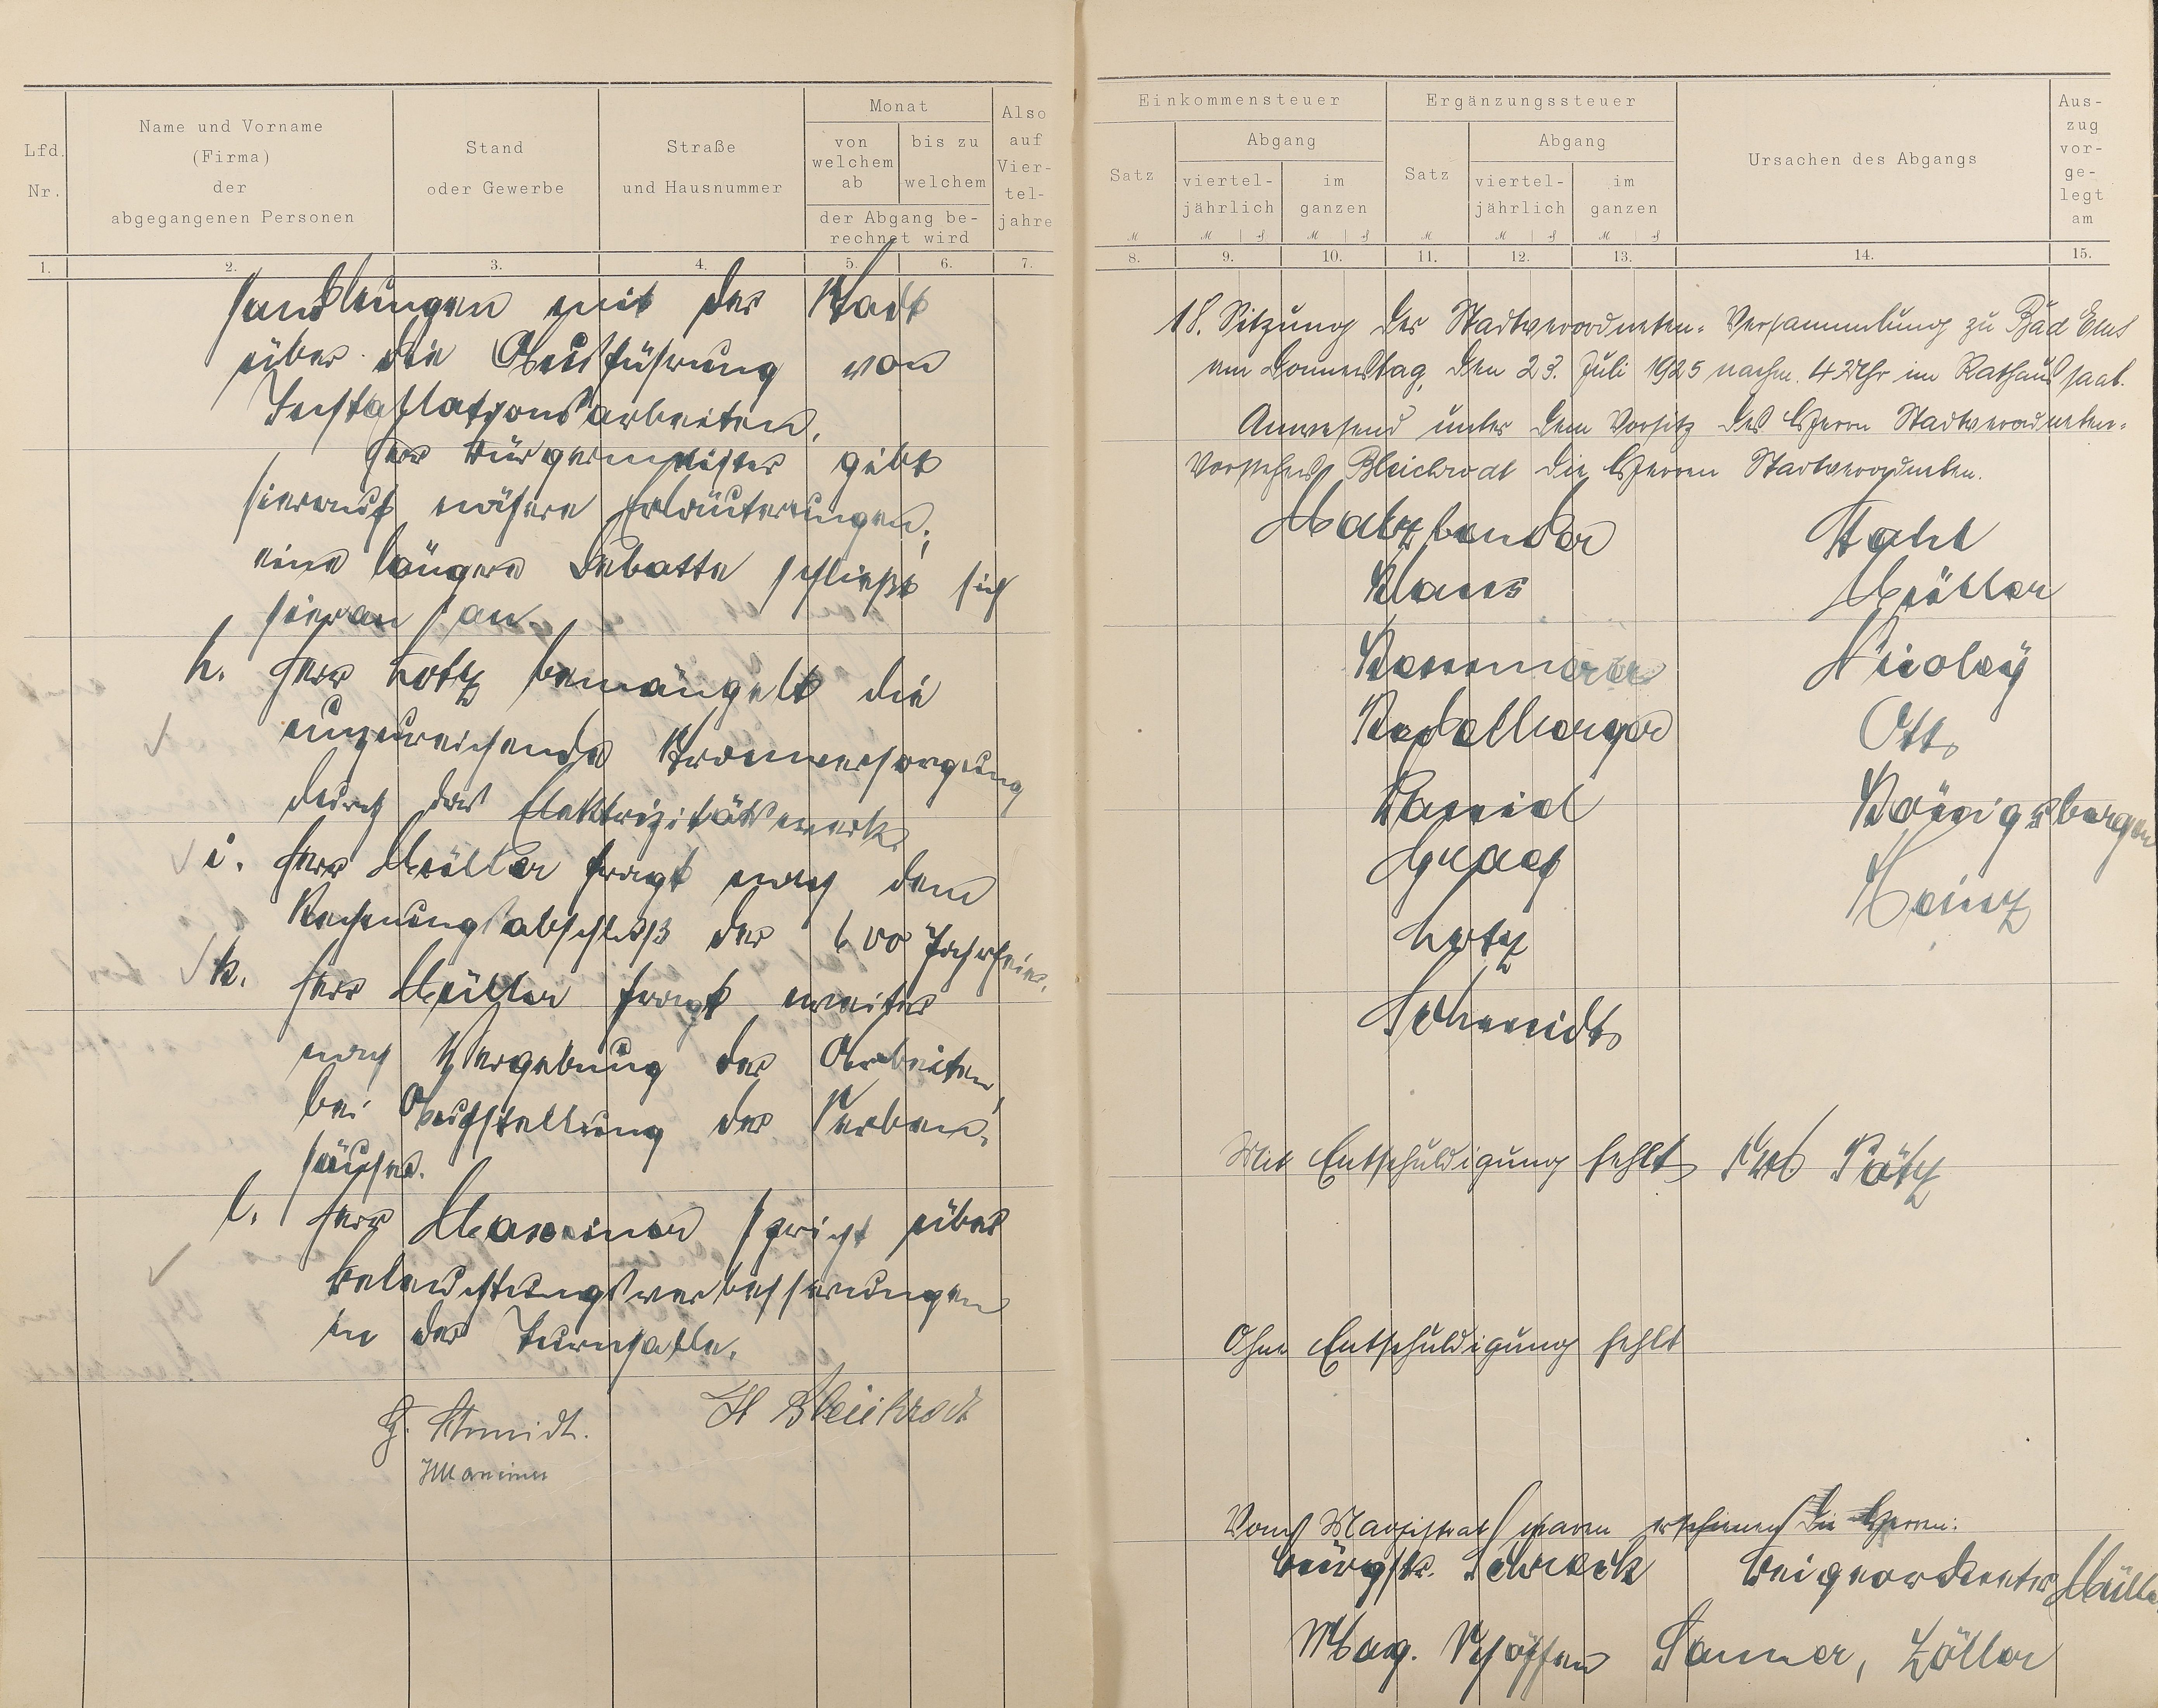 Lfd. Nr.
Name und Vorname
(Firma)
der
abgegangenen Personen
Stand
oder Gewerbe
Straße
und Hausnummer
Monat
von welchem ab
bis zu welchem
der Abgang be-
rechnet wird
Also auf Vier-tel-jahre
1. 2. 3. 4. 5. 6. 7.
handlungen mit der Stadt
über die Ausführung von
Installationsarbeiten.
Herr Bürgermeister gibt
hierauf nähere Erläuterungen,
eine längere Debatte schließt sich
hieran an.
h. Herr Lotz bemängelt die
unzureichende Stromversorgung
durch das Elektrizitätswerk.
i. Herr Müller fragt nach dem
Rechnungsabschluß der 600 Jahrfeier.
k. Herr Müller fragt weiter
nach Vergebung der Arbeiten,
bei Aufstellung der
häuser.
l. Herr Maxeiner spricht über
Beleuchtungsverbesserungen
in der Turnhalle.
G. Schmidt. H Bleichrodt
Maxeiner
Einkommensteuer
Ergänzungssteuer
Satz
Abgang
viertel-jährlich
im ganzen
Satz
Abgang
viertel-jährlich
im ganzen
Ursachen des Abgangs
Aus-zug vor-ge-legt am
M M ₰ M ₰ M M ₰ M ₰
8. 9. 10. 11. 12. 13. 14. 15.
18. Sitzung der Stadtverordneten-Versammlung zu Bad Ems
am Donnerstag, den 23. Juli 1925 nachm. 4 Uhr im Rathaussaal.
Anwesend unter dem Vorsitz des Herrn Stadtverordneten-
Vorstehers Bleichrodt die Herren Stadtverordneten.
Stahl
Klaus Müller
Nicolay
Otto
Königsberger
Graef Heinz
Lotz
Schmidt
Mit Entschuldigung fehlt Pätz
Ohne Entschuldigung fehlt
Vom Magistrat waren erschienen die Herren:
Bürgstr. Schreck Beigeordneter Müller
Mag. Schöffen Sanner, Zöller